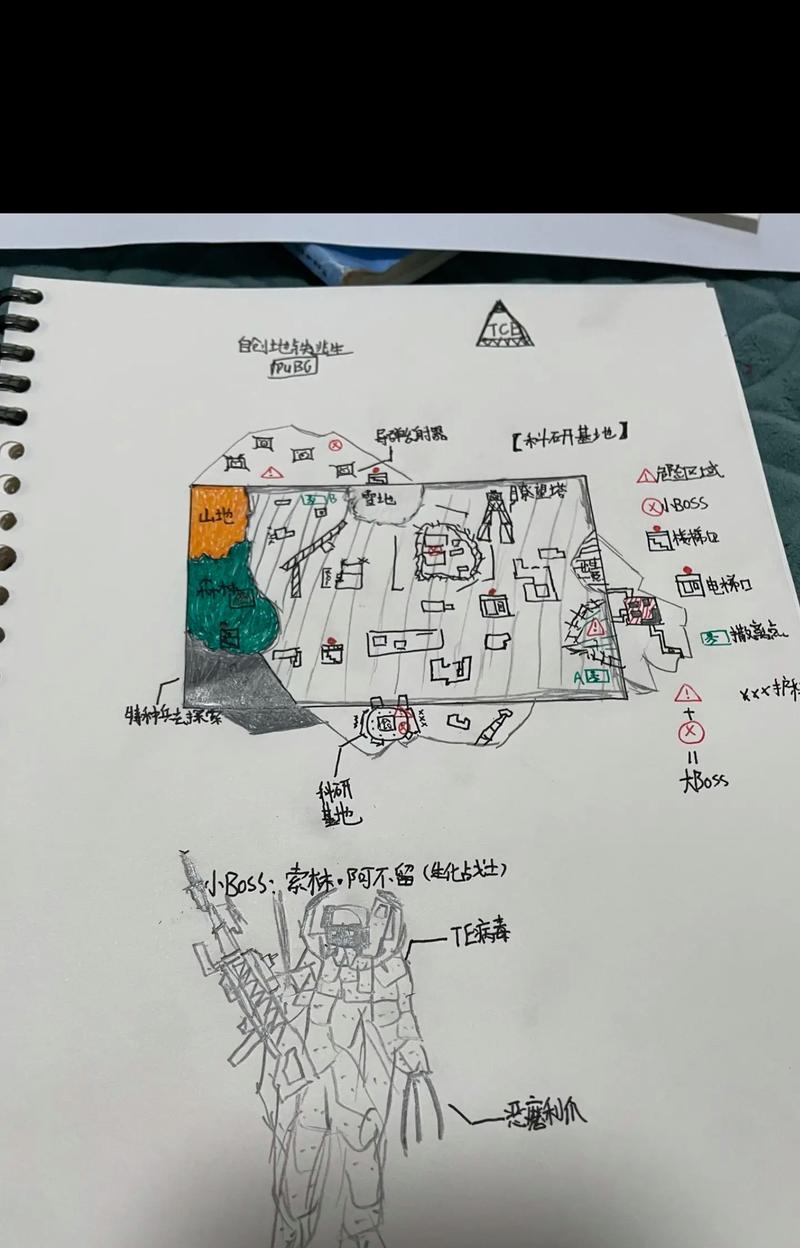 TCE
自创地铁逃生
PUBG
导弹发射器
【科研基地】
危险区域
小BOSS
楼梯口
电梯口
撤离点
B
雪地
瞭望塔
山地
森林
A
特种兵去探索
科研
基地
xxx护栏
+
=
大Boss
小BOSS：索林·阿不留（生化战士）
TE病毒
恶魔利爪